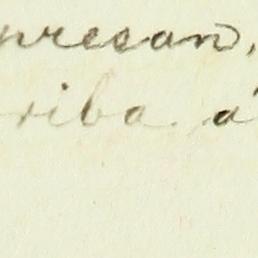 presan,
riba á